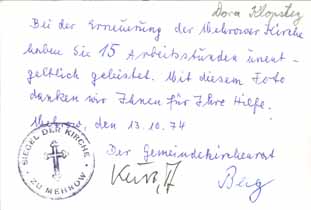 Dora Klopsteg
Bei der Erneuerung der Mehrower Kirche
haben Sie 15 Arbeitsstunden unent-
geltlich geleistet. Mit diesem Foto
danken wir Ihnen für Ihre Hilfe.
Mehrow, den 13.10.74
Der Gemeindekirchenrat
SIEGEL DER KIRCHE
ZU MEHROW
Berg